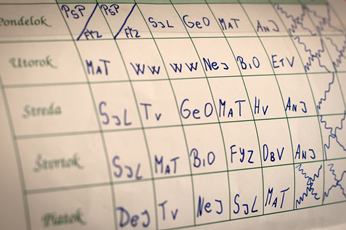 Pondelok PSP/FYZ PSP/FYZ SJL GEO MAT ANJ
Utorok MAT WW WW NEJ BIO ETV
Streda SJL TV GEO MAT HV ANJ
Štvrtok SJL MAT BIO FYZ OBV ANJ
Piatok DEJ TV NEJ SJL MAT